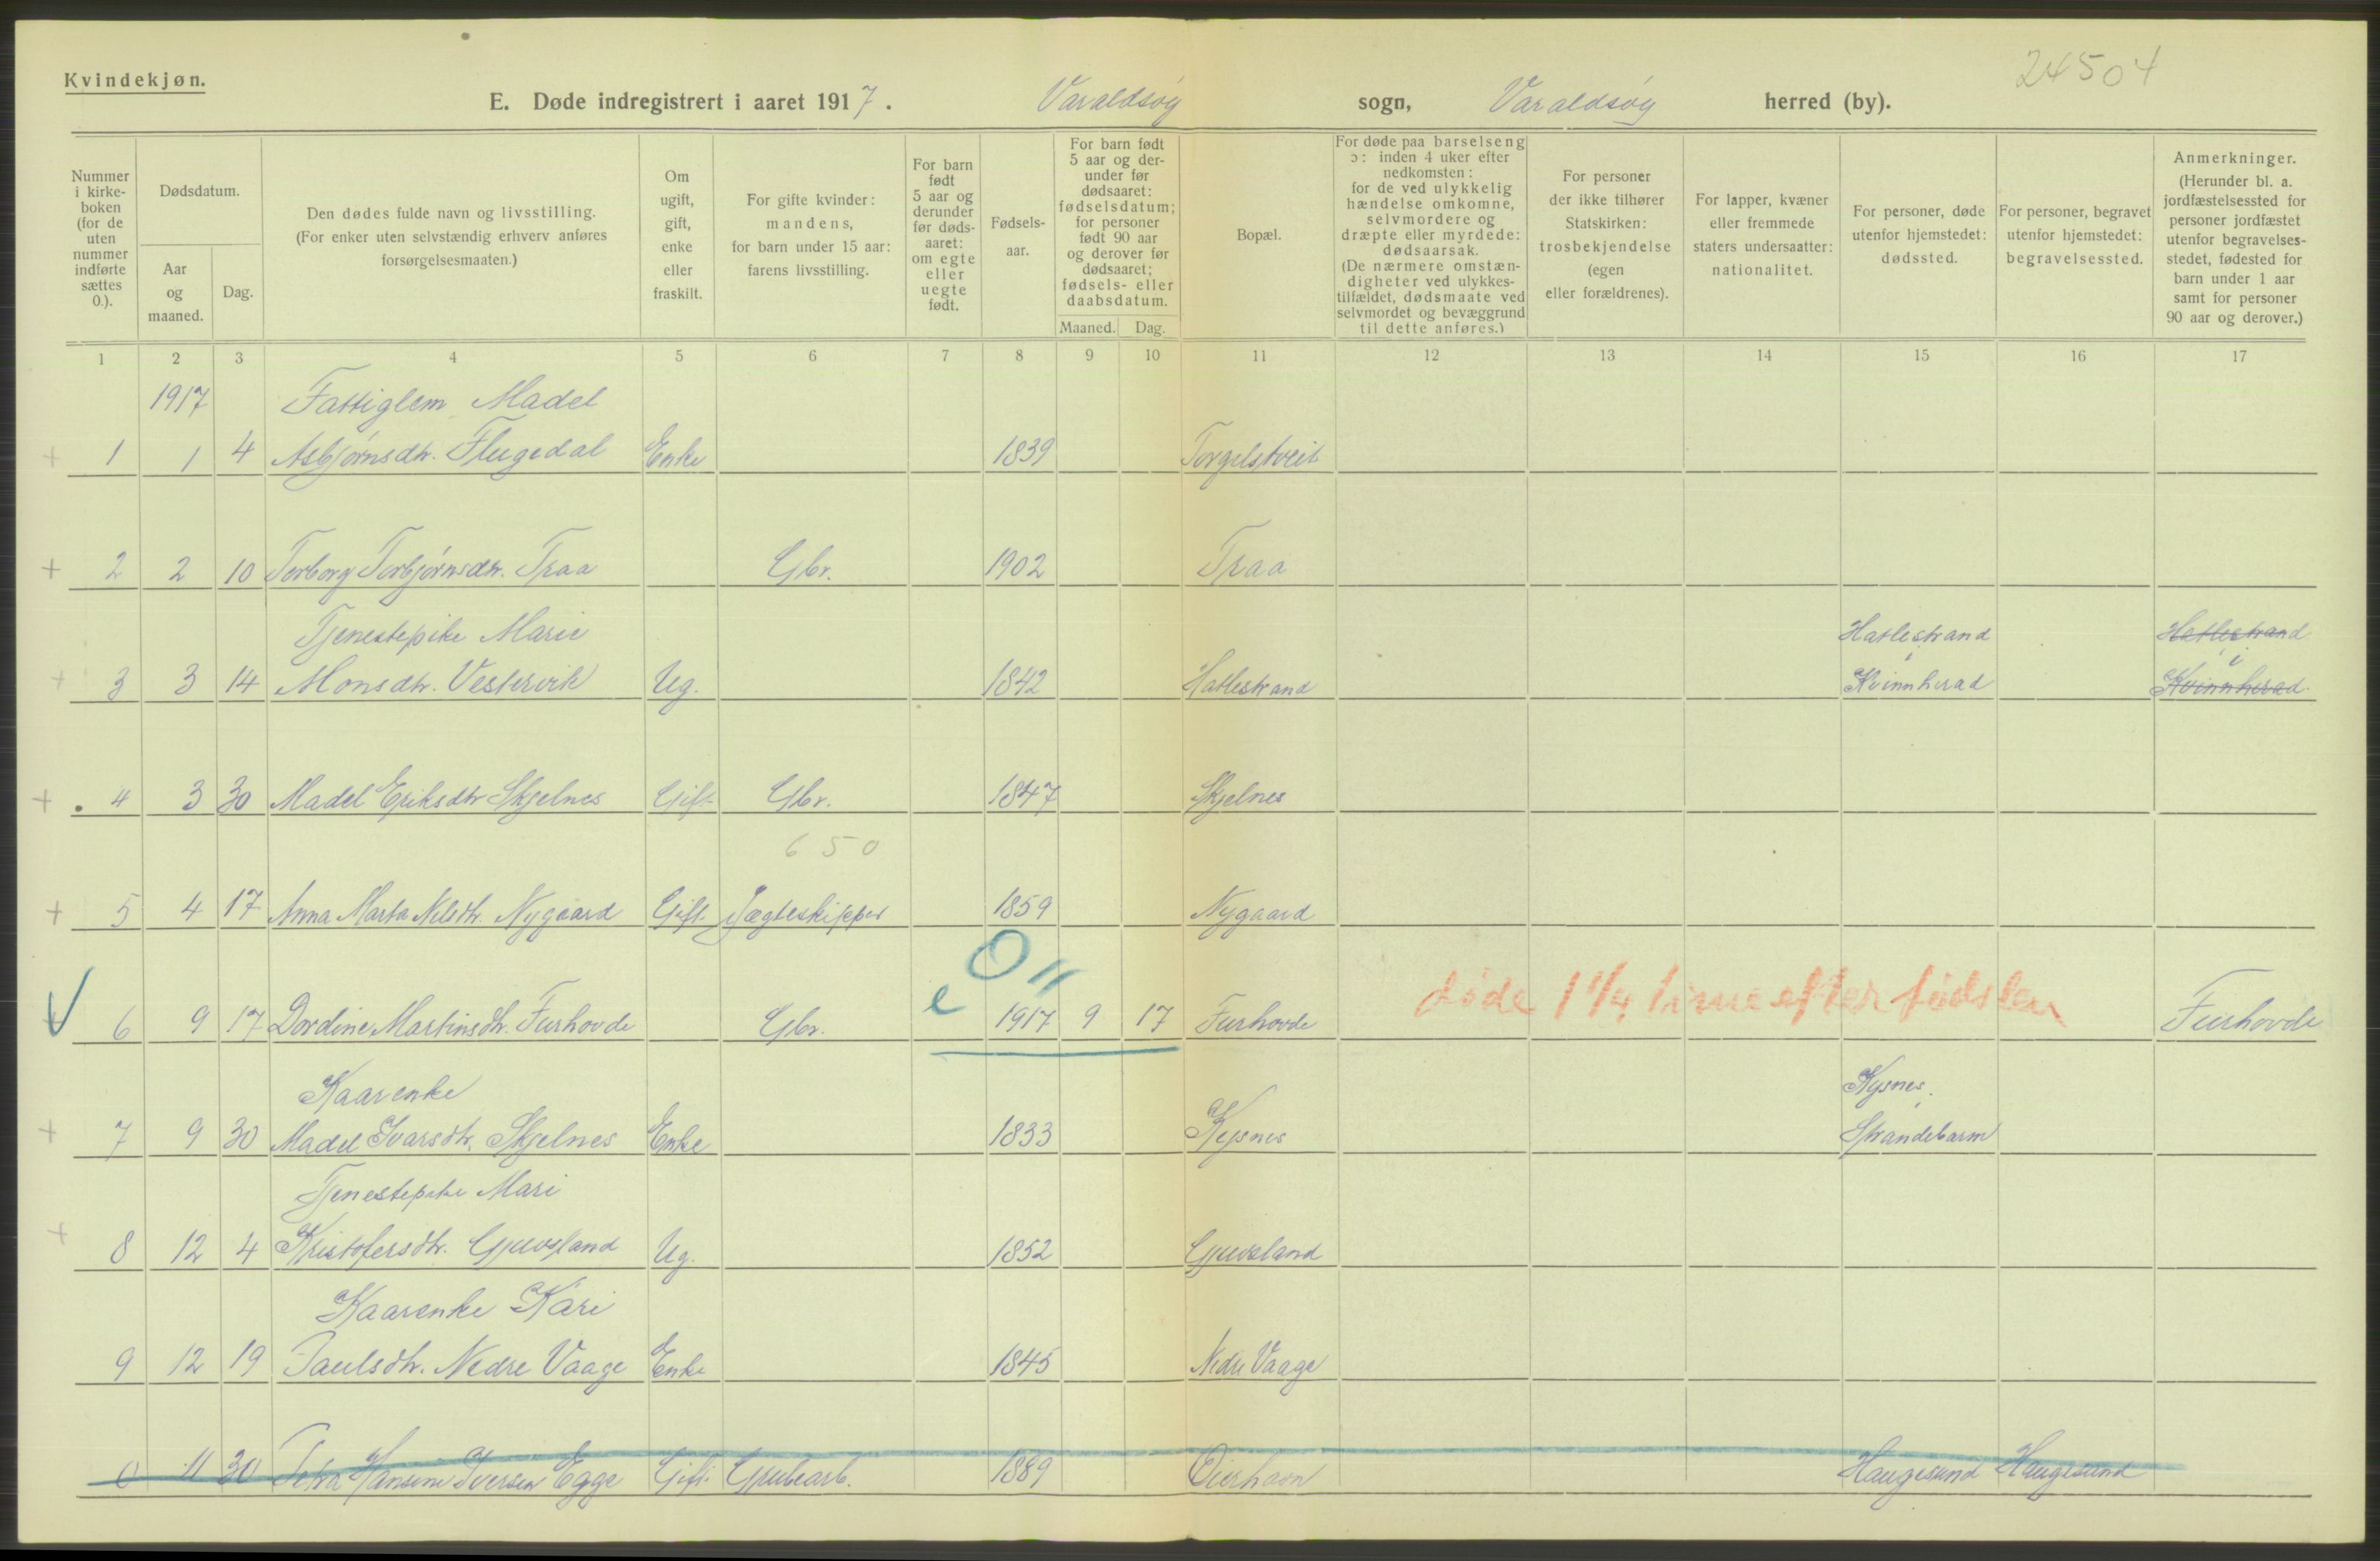 24504
Kvindekjøn.
E. Døde indregistrert i aaret 1917. Varaldsøy sogn, Varaldsøy herred (by).
Nummer i kirke-boken (for de uten nummer indførte sættes 0.).
Dødsdatum.
Aar og maaned.
Dag.
Den dødes fulde navn og livsstilling.
(For enker uten selvstændig erhverv anføres
forsørgelsesmaaten.)
Om ugift, gift, enke eller fraskilt.
For gifte kvinder:
mandens,
for barn under 15 aar:
farens livsstilling.
For barn født 5 aar og derunder før døds-aaret: om egte eller uegte født.
Fødsels-aar.
For barn født 5 aar og der-under før dødsaaret: fødselsdatum; for personer født 90 aar og derover før dødsaaret; fødsels- eller daabsdatum.
Maaned. Dag.
Bopæl.
For døde paa barselseng
ɔ: inden 4 uker efter
nedkomsten:
for de ved ulykkelig
hændelse omkomne,
selvmordere og
dræpte eller myrdede:
dødsaarsak.
(De nærmere omstæn-
digheter ved ulykkes-
tilfældet, dødsmaate ved
selvmordet og bevæggrund
til dette anføres.)
For personer
der ikke tilhører
Statskirken:
trosbekjendelse
(egen
eller forældrenes).
For lapper, kvæner
eller fremmede
staters undersaatter:
nationalitet.
For personer, døde
utenfor hjemstedet:
dødssted.
For personer, begravet
utenfor hjemstedet:
begravelsessted.
Anmerkninger.
(Herunder bl. a.
jordfæstelsessted for
personer jordfæstet
utenfor begravelses-
stedet, fødested for
barn under 1 aar
samt for personer
90 aar og derover.)
1 2 3 4 5 6 7 8 9 10 11 12 13 14 15 16 17
1917 Fattiglem Madel
+ 1 1 4 Asbjørnsdtr. Flugedal Enke 1839 Torgelstveit
+ 2 2 10 Torborg Torbjørnsdtr. Traa Gbr. 1902 Traa
Tjenestepike Marie Hatlestrand Hatlestrand
+ 3 3 14 Monsdtr. Vestervik Ug. 1842 Hatlestrand Kvinnherad i Kvinnherad
+ . 4 3 30 Madel Eriksdtr Skjelnes Gift Gbr. 1847 Skjelnes
650
+ 5 4 17 Anna Marta Nilsdtr. Nygaard Gift. Jægteskipper 1859 Nygaard
O 11
6 9 17 Dordine Martinsdtr. Furhovde Gbr. e 1917 9 17 Furhovde døde 1 1/4 time efter fødslen Furhovde
Kaarenke Kysnes,
+ 7 9 30 Madel Ivarsdtr. Skjelnes Enke 1833 Kysnes Strandebarm
Tjenestepike Mari
+ 8 12 4 Kristofersdtr. Gjuvsland Ug. 1852 Gjuvsland
Kaarenke Kari
9 12 19 Paulsdtr. Nedre Vaage Enke 1845 Nedre Vaage
0 11 30 Petra Hansine Iversen Egge Gift. Grubearb. 1889 Øierhavn Haugesund Haugesund